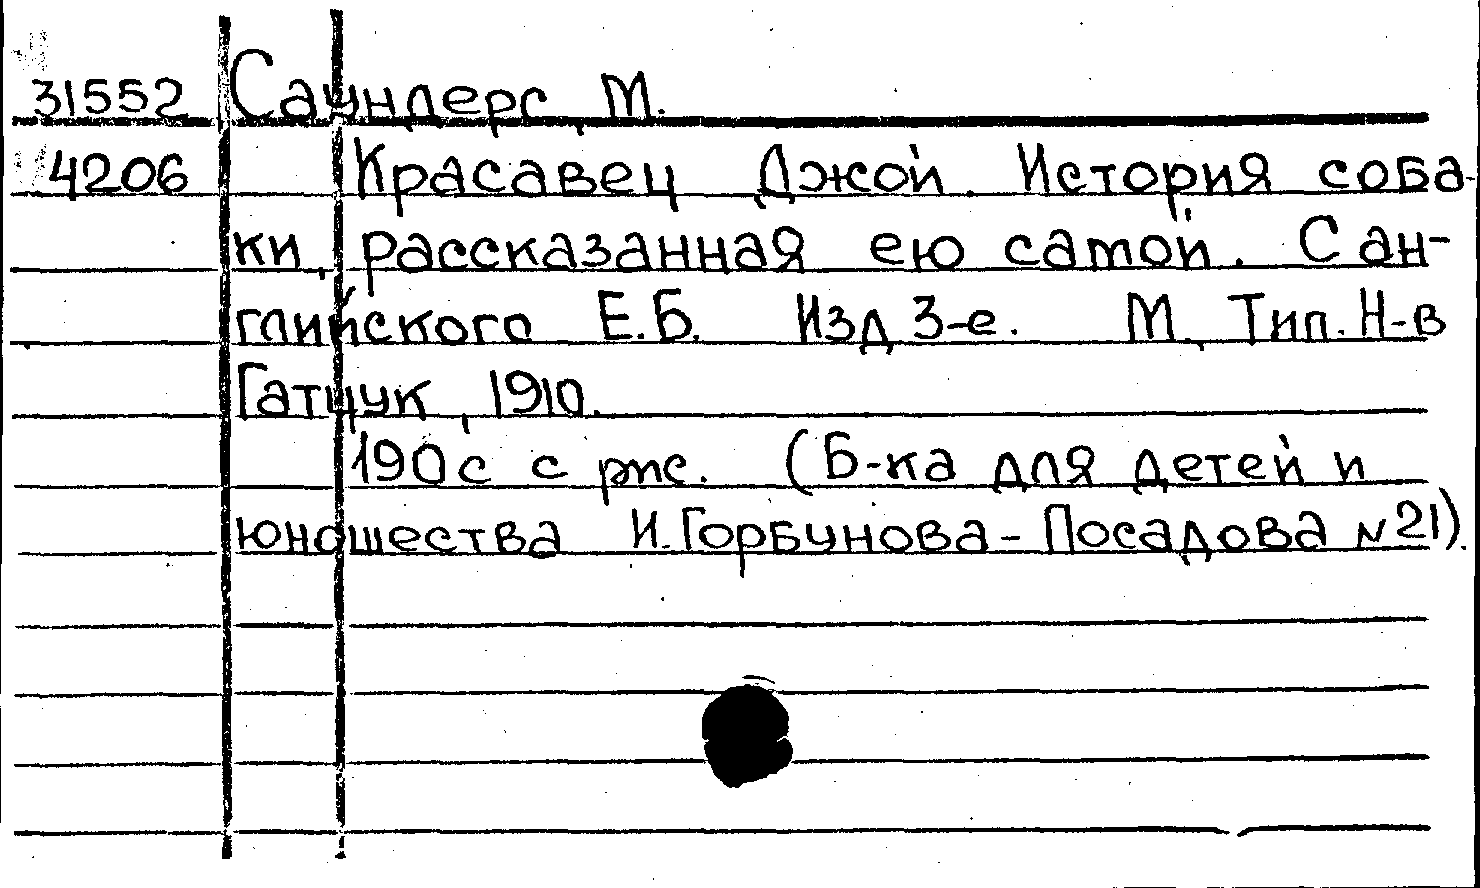 31552 Саундерс, М.
4206 Красавец Джой. История соба-
ки, рассказанная ею самой. С ан-
глийского Е.Б. Изд 3-е. М., Тип. Н-в
Гатцук, 1910.
190 с с рис. (Б-ка для детей и
юношества И. Горбунова-Посадова №21).